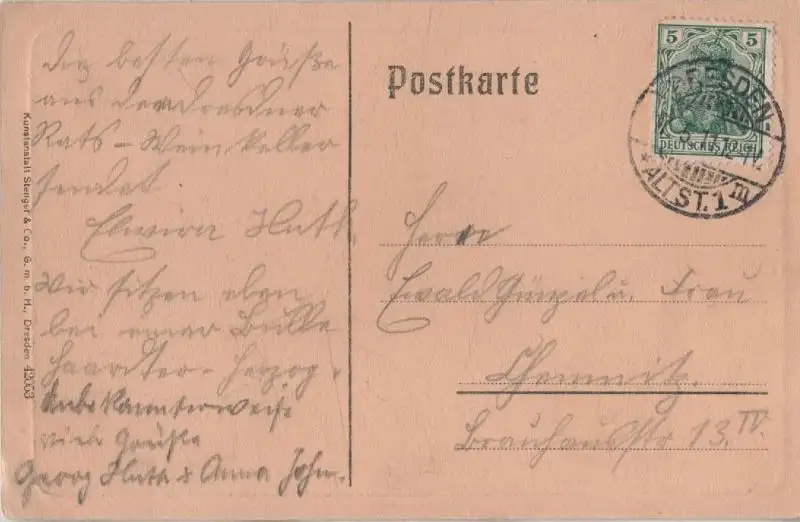 Die besten Grüße
aus der Dresdner
Rats-Weinkeller
sendet
Elwira Huth.
Wir sitzen eben
bei einer Bulle
Haardter-Herzog.
Unbekannterweise
viele Grüße
Georg Huth & Anna John.
Kunstanstalt Stengel & Co., G. m. b. H., Dresden 42053
Postkarte
5 5
DEUTSCHES REICH
DRESDEN-
ALTST. 1 m
Herrn
Ewald Günzel u. Frau
Chemnitz.
Brauhausstr 13. IV.